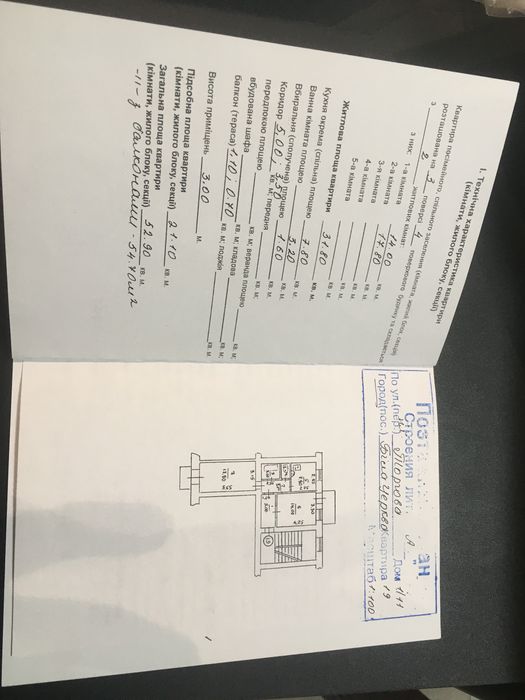 І. Технічна характеристика квартири
(кімнати, жилого блоку, секції)
Квартира посімейного, спільного заселення (кімната, жилий блок, секція)
розташована на 3 поверсі 4 поверхового будинку та складається
з 2 житлових кімнат
з них: 1-а кімната 14.00 кв. м.
2-а кімната 17.80 кв. м.
3-я кімната кв. м.
4-а кімната кв. м.
5-а кімната кв. м.
Житлова площа квартири 31.80 кв. м.
Кухня окрема (спільна) площею 7.80 кв. м.
Ванна кімната площею 3.20 кв. м.
Вбиральня (сполучена) площею 1.60 кв. м.
Коридор 5.00; 3.5 кв. м; передня кв. м;
передпокою площею кв. м;
вбудована шафа кв. м; веранда площею кв. м;
балкон (тераса) 1.10; 0.40 кв. м; кладова кв. м;
кв. м; лоджія кв. м.
Висота приміщень 3.00 м.
Підсобна площа квартири
(кімнати, жилого блоку, секції) 21.10 кв. м.
Загальна площа квартири
(кімнати, жилого блоку, секції) 52.90 кв. м.
-11- з балконами - 54.40 м2
Строения лит. А
По ул.(пер.) Торгова Дом 1/11
Город(пос.) Біла Церква Квартира 19
Масштаб 1:100